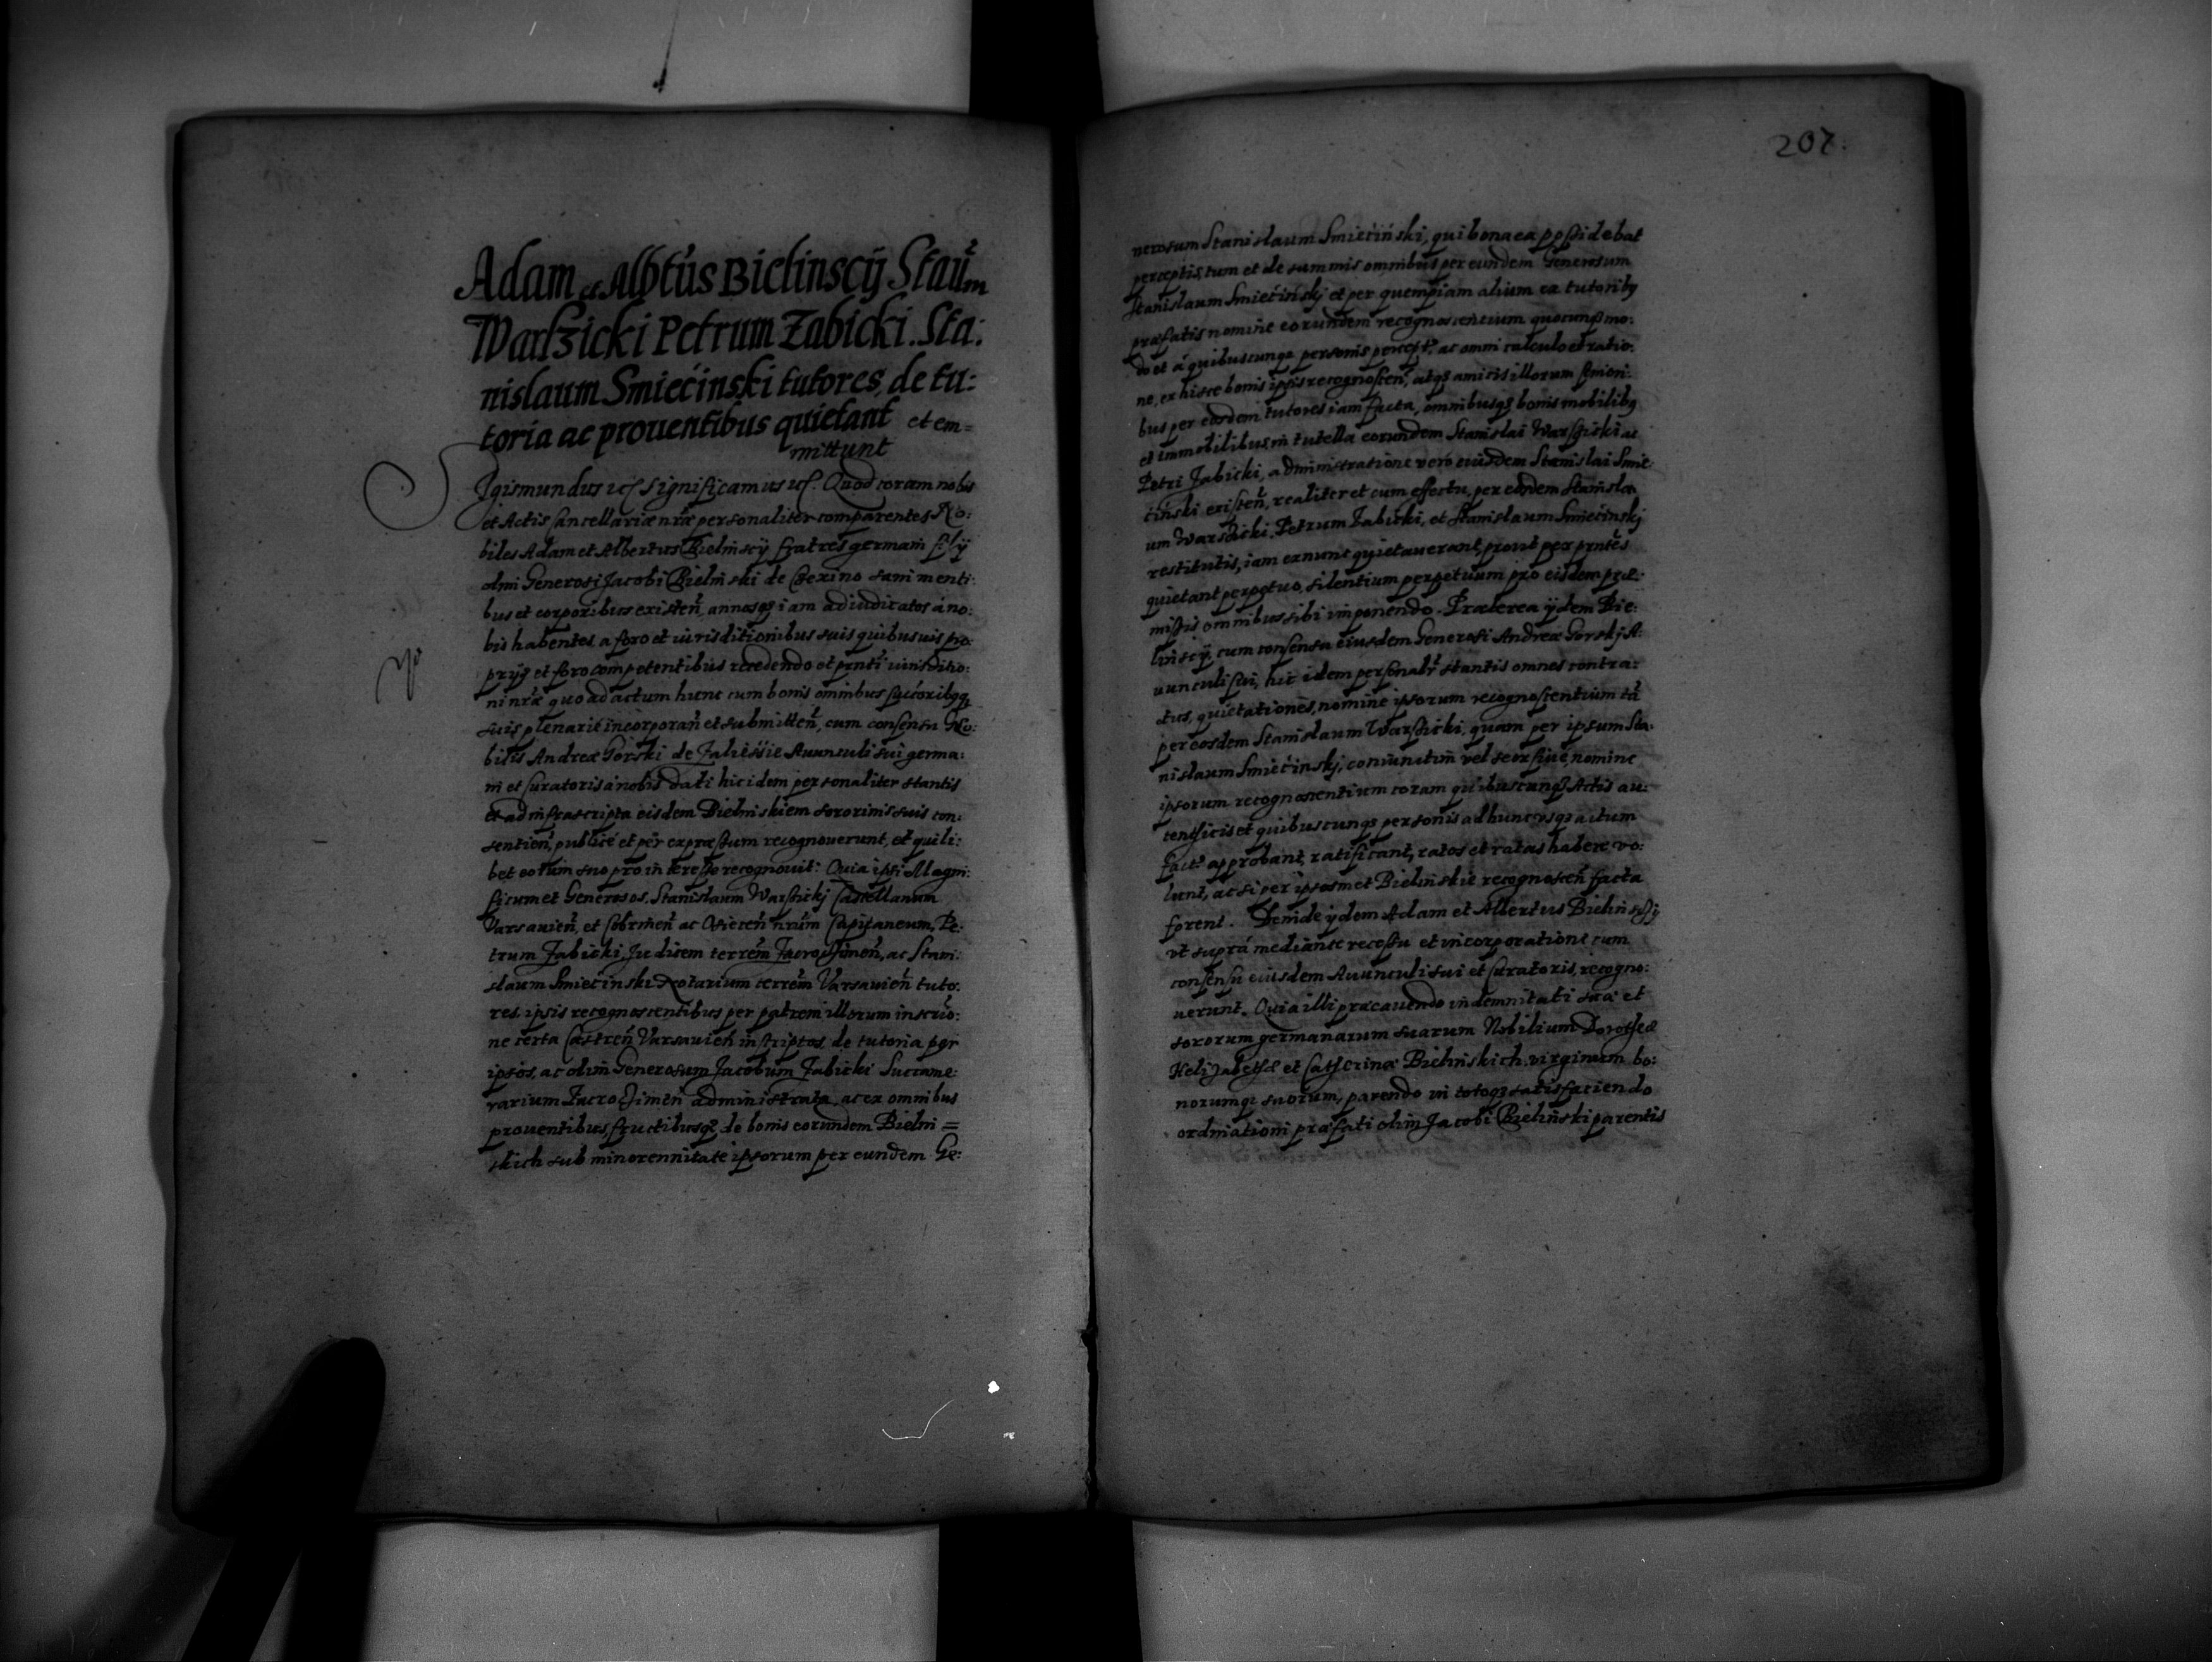 Adam et Albtus Bielinscÿ Staũm
Warszicki Petrum Zabicki. Sta:
nislaum Smiecinski tutores, de tu:
toria ac prouentibus quietant et em=
mittunt
Sigismundus etc. Significamus etc. Quod coram nobis
et Actis Cancellariæ nr̃æ personaliter comparentes No:
biles Adam et Albertus Bielinscÿ fratres germani filÿ
olim Generosi Jacobi Bielinski de sani menti:
bus et corporibus existeñ, annosq3 iam adiudicatos à no:
bis habentes, a foro et iurisditionibus suis quibusuis pro:
prÿs et foro competentibus recedendo et pr̃nti iurisditio:
ni nr̃æ quo ad actum hunc cum bonis omnibus
suis plenarie incorporañ et submitteñ, cum consensu No:
bilis Andreæ Gorski de Auunculi sui germa:
ni et Curatoris à nobis dati hic idem personaliter stantis
et ad infrascripta eisdem Bielinskiem sororinis suis con:
sentieñ, publicè et per expressum recognouerunt, et quili:
bet eorum suo pro interesse recognouit: Quia ipsi Magni:
ficum et Generosos. Stanislaum Warszickÿ Castellanum
Varsauieñ, et ac nr̃um Capitaneum, Pe:
trum Zabicki Judicem terreñ Zacrocimeñ, ac Stani:
slaum Smiecinski Notarium terreñ Varsauieñ tuto:
res ipsis recognoscentibus per patrem illorum inscrio:
ne certa Castreñ Varsauieñ inscriptos, de tutoria per
ipsos, ac olim Generosum Jacobum Zabicki Succame:
rarium Zacrocimeñ administrata, ac ex omnibus
prouentibus, fructibusq3 de bonis eorundem Bielin=
skich sub minorennitate ipsorum per eundem Ge:
207.
nerosum Stanislaum Smieciński, qui bona ea possidebat
perceptis, tum et de summis omnibus per eundem Generosum
Stanislaum Smiecińskj et per quempiam alium ex tutorib9
præfatis nomine eorundem recognoscentium quocunq3 mo:
do et à quibuscunq3 personis percept: ac omni calculo et ratio:
ne, ex hisce bonis ipsis recognosceñ, atq3 amicis illorum
bus per eosdem tutores iam facta, omnibusq3 bonis mobilib9
et immobilibus, in tutella eorundem Stanislai Warszicki ac
Petri Zabicki, administratione vero eiusdem Stanislai Smie:
cinski existeñ, realiter et cum effectu, per eosdem Stanisla
um Warszicki, Petrum Zabicki, et Stanislaum Smiecinskj
restitutis, iam exnunc quietauerant, prout per pr̃ntes
quietant perpetuo, silentium perpetuum pro eisdem præ:
missis omnibus sibi imponendo. Præterea ÿdem Bie:
linscÿ, cum consensu eiusdem Generosi Andreæ Gorskj A:
uunculi sui, hic idem personalr̃ stantis omnes contra:
ctus, quietationes, nomine ipsorum recognoscentium tã
per eosdem Stanislaum Warszicki, quam per ipsum Sta:
nislaum Smiecinskj, coniunctim vel seorsiue nomine
ipsorum recognoscentium coram quibuscunq3 Actis au:
tenticis et quibuscunq3 personis ad hunc usq3 actum
fact: approbant, ratificant, ratos et ratas habere vo:
lunt, ac si per ipsosmet Bielinskie recognosceñ facta
forent. Deinde ÿdem Adam et Albertus Bielinscÿ
vt suprà mediante recessu et incorporatione cum
consensu eiusdem Auunculi sui et Curatoris, recogno:
uerunt. Quia illi præcauendo indemnitati suæ et
sororum germanarum suarum Nobilium Dorotheæ
Helizabethæ et Catherinæ Bielinskich virginum bo:
norumq3 suorum, parendo in totoq3 satisfaciendo
ordinationi præfati olim Jacobi Bielinski parentis